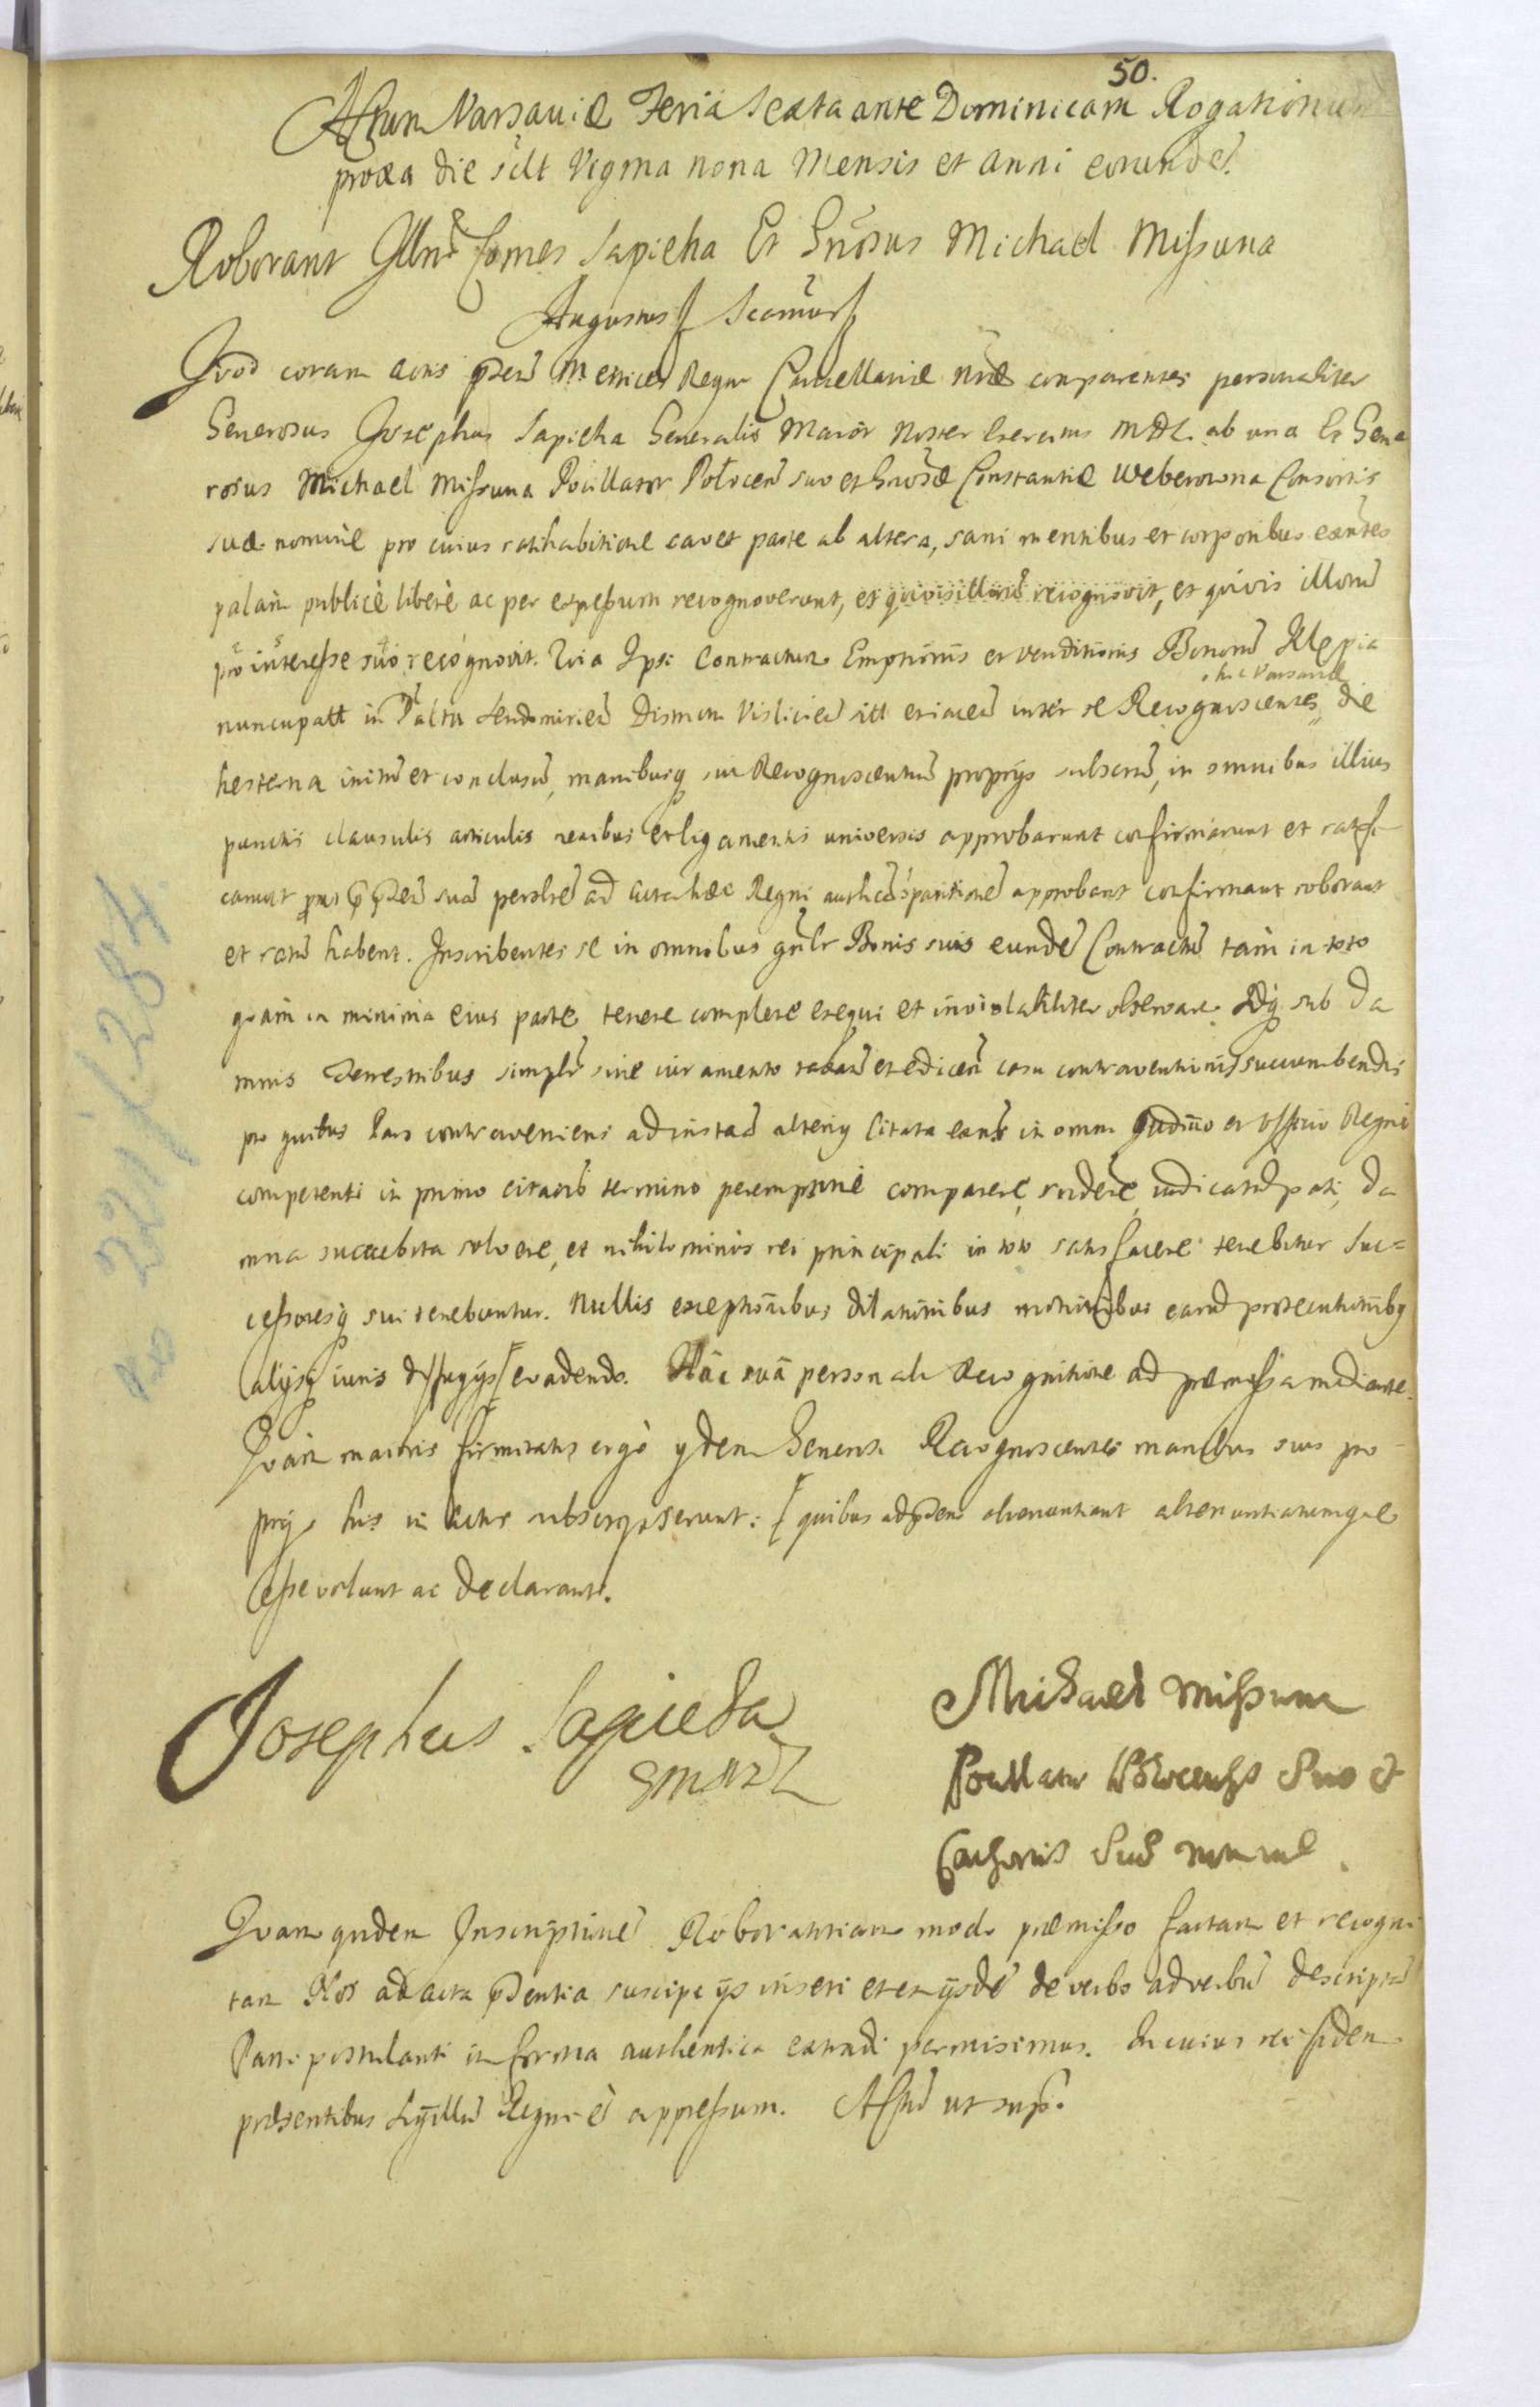 50.
Actum Varsaviæ Feria Sexta ante Dominicam Rogationum
proxa die silt Vigma nona Mensis et Anni eorundē.
Roborant Comes Sapieha Et Gnõsus Michael Missuna
Augustus
Quod coram actis Metrices Regni Cancellariæ comparentes personaliter
Generosus Josephus Sapieha Generalis Maior Noster Exercitus MDL. ab una Et Gene
rosus Michael Missuna Pocillator Połocen̄ suo et Gnosæ Constantiæ Weberowna Consortis
suæ nomine pro cuius ratihabitione cavet parte ab altera, sani mentibus et corporibus exn̄tes
palam publicè liberè ac per expressum recognoverunt, et quivis illorū recognovit, et quivis illorū
pro interesse suo recognovit. Quia Ipsi Contractum Emptionis et venditionis Bonorū Klepia
hic Varsaviæ
nuncupatt in Palttu Sendomirien̄ Districtu Vislicien̄ sitt et iacen̄ inter se Recognoscentes die
hesterna initū et conclusū, manibusq sui Recognoscentiū proprijs subscrit̄, in omnibus illius
punctis clausulis articulis nexibus et ligamentis universis approbarunt confirmarunt et ratifi
carunt prout suā ad acta hæc Regni approbant confirmant roborant
et ratū habent. Inscribentes se in omnibus gn̄lr Bonis suis eundē Contractū tam in toto
quàm in minima eius parte tenere complere exequi et inviolabiliter observare. Idq sub da
mnis Terrestribus simplr̄ sine iuramento taxan̄ et edicen̄ casu contraventionis succumbendis
pro quibus Pars contraveniens ad instaā alterius Citata exn̄s in omni Judicio et Officio Regni
competenti in primo citaōis termino peremptoriè comparere, rndere, iudicatū pati, da
mna succubita solvere, et nihilominus rei principali in toto satisfacere tenebitur Suc=
cessoresq sui tenebuntur. Nullis exceptionibus dilationibus motionibus earūd prosecutionibq
alijsq iuris diffugijs evadendo. Hâc suâ personali Recognitione ad præmissa mediante.
Quàm maioris firmitatis ergò ijdem Generosi Recognoscentes manibus suis pro
prijs his in Actis subscripserunt:
esse volunt ac declarant.
Josephus Sapieha
GMWXL
Michael Missuna
Pocillator Polocensis Suo et
Consortis Suæ nomine.
Quam quidem Inscriptionē Roborationem modo præmisso factam et recogni
tam Nos ad acta pn̄dentia suscipi ijs inseri et ex ijsdē de verbo ad verbū descriptā
Parti postulanti in forma authentica extradi permisimus. In cuius rei fidem
præsentibus Sigillū Regni ē appressum. Actū ut supra.
Ao 221/284.